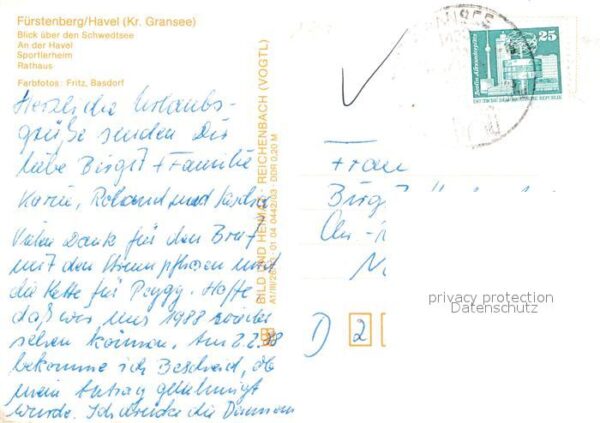 Fürstenberg/Havel (Kr. Gransee)
Blick über den Schwedtsee
An der Havel
Sportlerheim
Rathaus
Farbfotos: Fritz, Basdorf
Herzliche Urlaubs-
grüße senden Dir
liebe Birgit + Familie
Karin, Roland und
Vielen Dank für den Brief
mit den und
die Kette für Peggy. Hoffe
daß wir uns 1988 wieder
sehen können. Am 2.2.88
bekomme ich Bescheid, ob
mein Antrag genehmigt
wurde. Ich drücke die Daumen
BILD UND HEIMAT REICHENBACH (VOGTL)
A1/III/26/13 01 04 0442/03 DDR 0,20 M
25
DEUTSCHE DEMOKRATISCHE REPUBLIK
Frau
Birg
D 2
privacy protection
Datenschutz